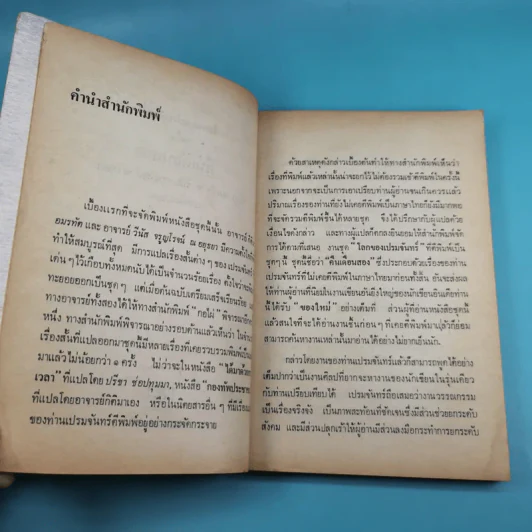 คำนำสำนักพิมพ์
เบื้องแรกที่จะจัดพิมพ์หนังสือชุดนี้นั้น อาจารย์
อมรทัต และ อาจารย์ วีนัส จรูญโรจน์ ณ อยุธยา มีความตั้งใจ
ทำให้สมบูรณ์ที่สุด มีการแปลเรื่องสั้นต่าง ๆ ของเปรมจันทร์
เด่น ๆ ไว้เกือบทั้งหมดนับได้เป็นจำนวนร้อยเรื่อง ตั้งใจว่าจะ
ทะยอยออกเป็นชุด ๆ แต่เมื่อต้นฉบับเตรียมเสร็จเรียบร้อย
ทางอาจารย์ทั้งสองได้ให้ทางสำนักพิมพ์ "กอไผ่" พิจารณา
หนึ่ง ทางสำนักพิมพ์พิจารณาอย่างรอบด้านแล้วเห็นว่า ใน
เรื่องสั้นที่แปลออกมาชุดนี้มีหลายเรื่องที่เคยรวบรวมพิมพ์
มาแล้วไม่น้อยกว่า ๑ ครั้ง ไม่ว่าจะในหนังสือ
เวลา" ที่แปลโดย ปรีชา ช่อปทุมมา, หนังสือ "กองทัพประชา
ที่แปลโดยอาจารย์กิติมาเอง หรือในนิตยสารอื่น ๆ ที่มีเรื่อง
ของท่านเปรมจันทร์ตีพิมพ์อยู่อย่างกระจัดกระจาย
ด้วยสาเหตุดังกล่าวเบื้องต้นทำให้ทางสำนักพิมพ์เห็นว่า
เรื่องที่พิมพ์แล้วเหล่านั้นน่าจะยกไว้ไม่ต้องรวมเข้าตีพิมพ์ในครั้งนี้
เพราะนอกจากจะเป็นการเอาเปรียบท่านผู้อ่านจนเกินควรแล้ว
ปริมาณเรื่องของท่านที่ยังไม่เคยตีพิมพ์เป็นภาษาไทยก็ยังมีมากพอ
ที่จะจัดรวมตีพิมพ์ขึ้นได้หลายชุด จึงได้ปรึกษากับผู้แปลด้วย
เงื่อนไขดังกล่าว และทางผู้แปลก็ตกลงยินยอมให้สำนักพิมพ์จัด
การได้ตามที่เสนอ งานชุด "โลกของเปรมจันทร์" ที่ตีพิมพ์เป็น
ชุดๆ นี้ ชุดนี้ชื่อว่า คืนเดือนสอง จึงประกอบด้วยเรื่องของท่าน
เปรมจันทร์ที่ไม่เคยตีพิมพ์ในภาษาไทยมาก่อนทั้งสิ้น อันจะส่งผล
ให้ท่านผู้อ่านที่นิยมในงานเขียนอันยิ่งใหญ่ของนักเขียนอินเดียท่าน
นี้ได้รับ "ของใหม่" อย่างเต็มที่ ส่วนผู้ที่อ่านหนังสือชุดนี้
แล้วสนใจที่จะได้อ่านงานชิ้นก่อนๆ ที่เคยตีพิมพ์มาแล้วก็ย่อม
สามารถค้นหางานเหล่านั้นมาอ่านได้อย่างไม่ยากเย็นนัก
กล่าวโดยงานของท่านเปรมจันทร์แล้วก็สามารถพูดได้อย่าง
เต็มปากว่าเป็นงานศิลปที่ยากจะหางานของนักเขียนในรุ่นเดียว
กับท่านเปรียบเทียบได้ เปรมจันทร์ถือเสมอว่างานวรรณกรรม
เป็นเรื่องจริงจัง เป็นภาพสะท้อนที่ชัดเจนซึ่งมีส่วนช่วยยกระดับ
สังคม และมีส่วนปลุกเร้าให้ผู้อ่านมีส่วนลงมือกระทำการยกระดับ